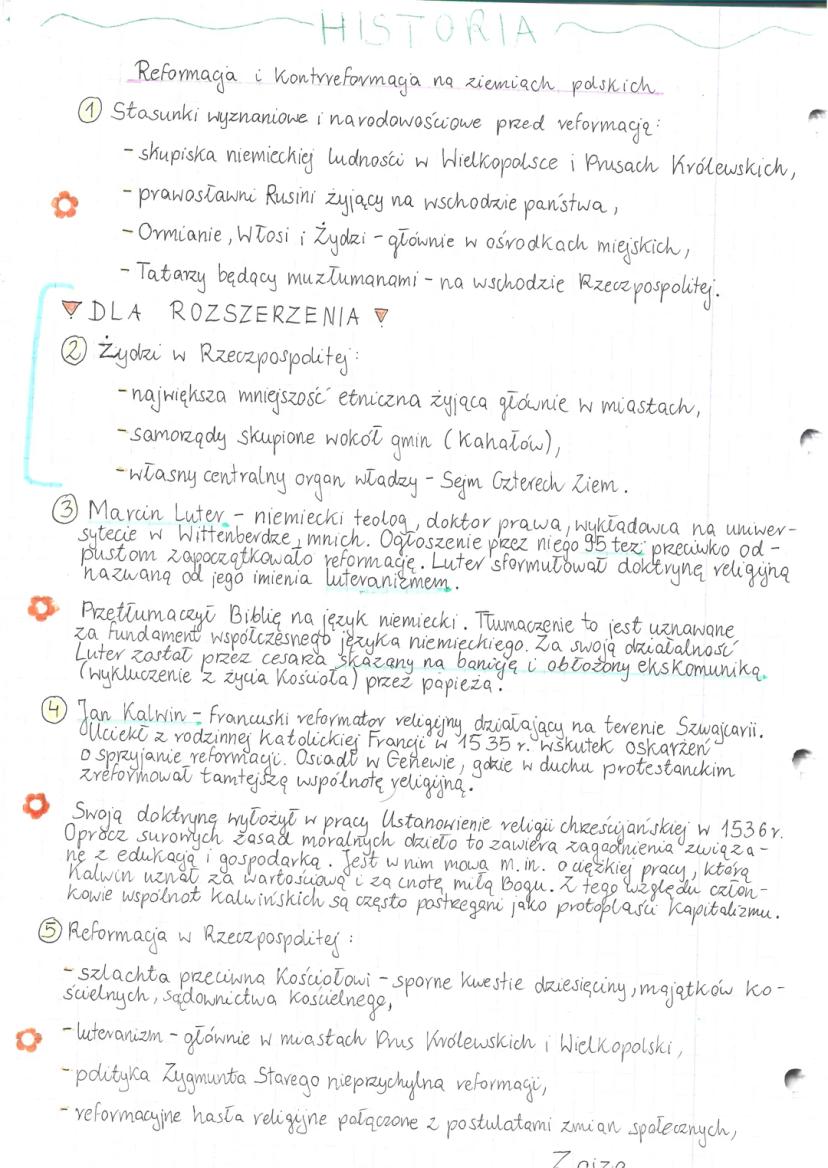 HISTORIA
Reformacja i Kontrreformacja na ziemiach polskich
1 Stosunki wyznaniowe i narodowościowe przed reformacją:
- skupiska niemieckiej ludności w Wielkopolsce i Prusach Królewskich,
- prawosławni Rusini żyjący na wschodzie państwa,
- Ormianie, Włosi i Żydzi - głównie w ośrodkach miejskich,
- Tatarzy będący muzłumanami - na wschodzie Rzeczpospolitej.
DLA ROZSZERZENIA
2 Żydzi w Rzeczpospolitej:
- największa mniejszość etniczna żyjąca głównie w miastach,
- samorządy skupione wokół gmin (kahałów),
- własny centralny organ władzy - Sejm Czterech Ziem.
3 Marcin Luter - niemiecki teolog, doktor prawa, wykładowca na uniwer-
sytecie w Wittenberdze, mnich. Ogłoszenie przez niego 95 tez przeciwko od-
pustom zapoczątkowało reformację. Luter sformułował doktrynę religijną
nazwaną od jego imienia luteranizmem.
Przetłumaczył Biblię na język niemiecki. Tłumaczenie to jest uznawane
za fundament współczesnego języka niemieckiego. Za swoją działalność
Luter został przez cesarza skazany na banicję i obłożony ekskomuniką
(wykluczenie z życia Kościoła) przez papieża.
4 Jan Kalwin - francuski reformator religijny działający na terenie Szwajcarii.
Uciekł z rodzinnej katolickiej Francji w 1535 r. wskutek oskarżeń
o sprzyjanie reformacji. Osiadł w Genewie, gdzie w duchu protestanckim
zreformował tamtejszą wspólnotę religijną.
Swoją doktrynę wyłożył w pracy Ustanowienie religii chrześcijańskiej w 1536 r.
Oprócz surowych zasad moralnych dzieło to zawiera zagadnienia związa-
ne z edukacją i gospodarką. Jest w nim mowa m.in. o ciężkiej pracy, którą
Kalwin uznał za wartościową i za cnotę miłą Bogu. Z tego względu człon-
kowie wspólnot kalwińskich są często postrzegani jako protoplaści kapitalizmu.
5 Reformacja w Rzeczpospolitej:
- szlachta przeciwna Kościołowi - sporne kwestie dziesięciny, majątków ko-
ścielnych, sądownictwa kościelnego,
- luteranizm - głównie w miastach Prus Królewskich i Wielkopolski,
- polityka Zygmunta Starego nieprzychylna reformacji,
- reformacyjne hasła religijne połączone z postulatami zmian społecznych,